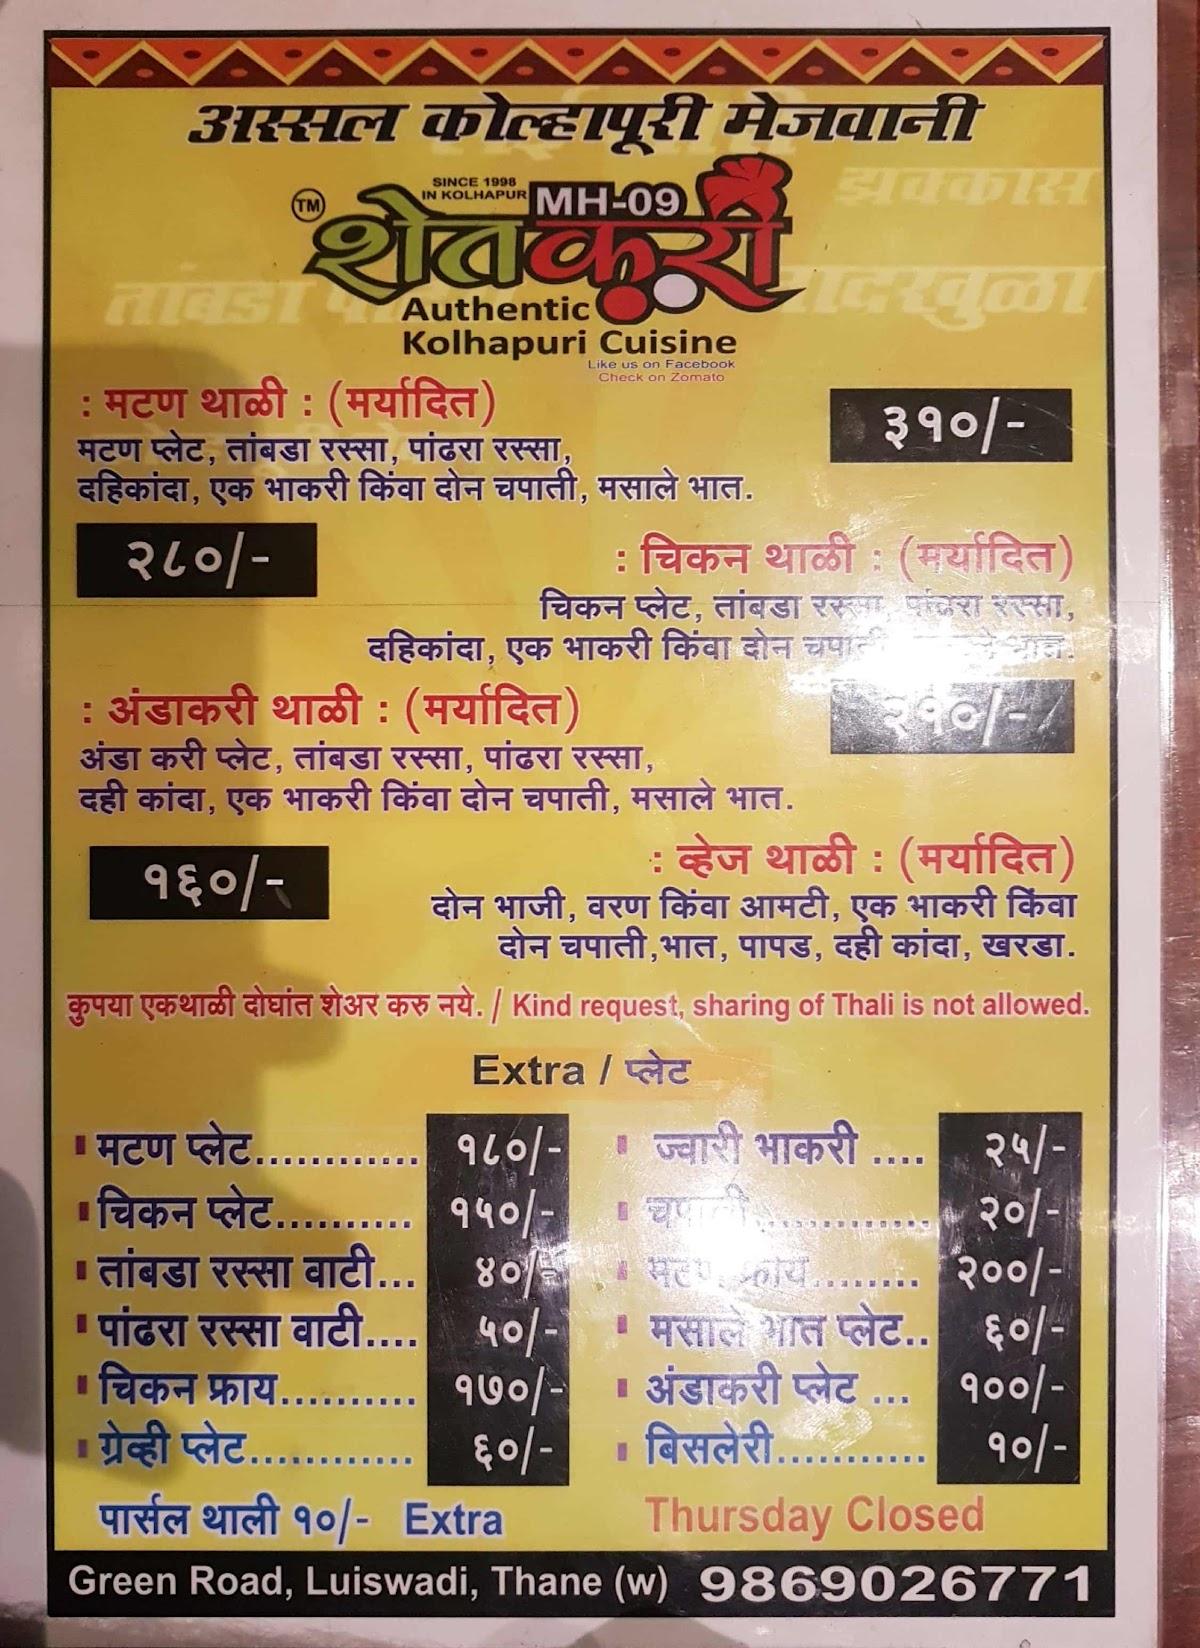 अस्सल कोल्हापूरी मेजवानी
झक्कास
TM
SINCE 1998
IN KOLHAPUR
MH-09
शेतकरी
तांबडा
Authentic
Kolhapuri Cuisine
Like us on Facebook
Check on Zomato
: मटण थाळी : (मर्यादित)
३१०/-
मटण प्लेट, तांबडा रस्सा, पांढरा रस्सा,
दहिकांदा, एक भाकरी किंवा दोन चपाती, मसाले भात.
२८०/-
: चिकन थाळी : (मर्यादित)
चिकन प्लेट, तांबडा रस्सा, पांढरा रस्सा,
दहिकांदा, एक भाकरी किंवा दोन चपाती, मसाले भात.
: अंडाकरी थाळी : (मर्यादित)
२१०/-
अंडा करी प्लेट, तांबडा रस्सा, पांढरा रस्सा,
दही कांदा, एक भाकरी किंवा दोन चपाती, मसाले भात.
१६०/-
: व्हेज थाळी : (मर्यादित)
दोन भाजी, वरण किंवा आमटी, एक भाकरी किंवा
दोन चपाती,भात, पापड, दही कांदा, खरडा.
कुपया एकथाळी दोघांत शेअर करु नये. / Kind request, sharing of Thali is not allowed.
Extra / प्लेट
मटण प्लेट............ १८०/-
चिकन प्लेट.......... १५०/-
तांबडा रस्सा वाटी... ४०/-
पांढरा रस्सा वाटी.... ५०/-
चिकन फ्राय.......... १७०/-
ग्रेव्ही प्लेट............ ६०/-
ज्वारी भाकरी .... २५/-
चपाती............. २०/-
मटण फ्राय........ २००/-
मसाले भात प्लेट.. ६०/-
अंडाकरी प्लेट ... १००/-
बिसलेरी........... १०/-
पार्सल थाली १०/- Extra
Thursday Closed
Green Road, Luiswadi, Thane (w) 9869026771